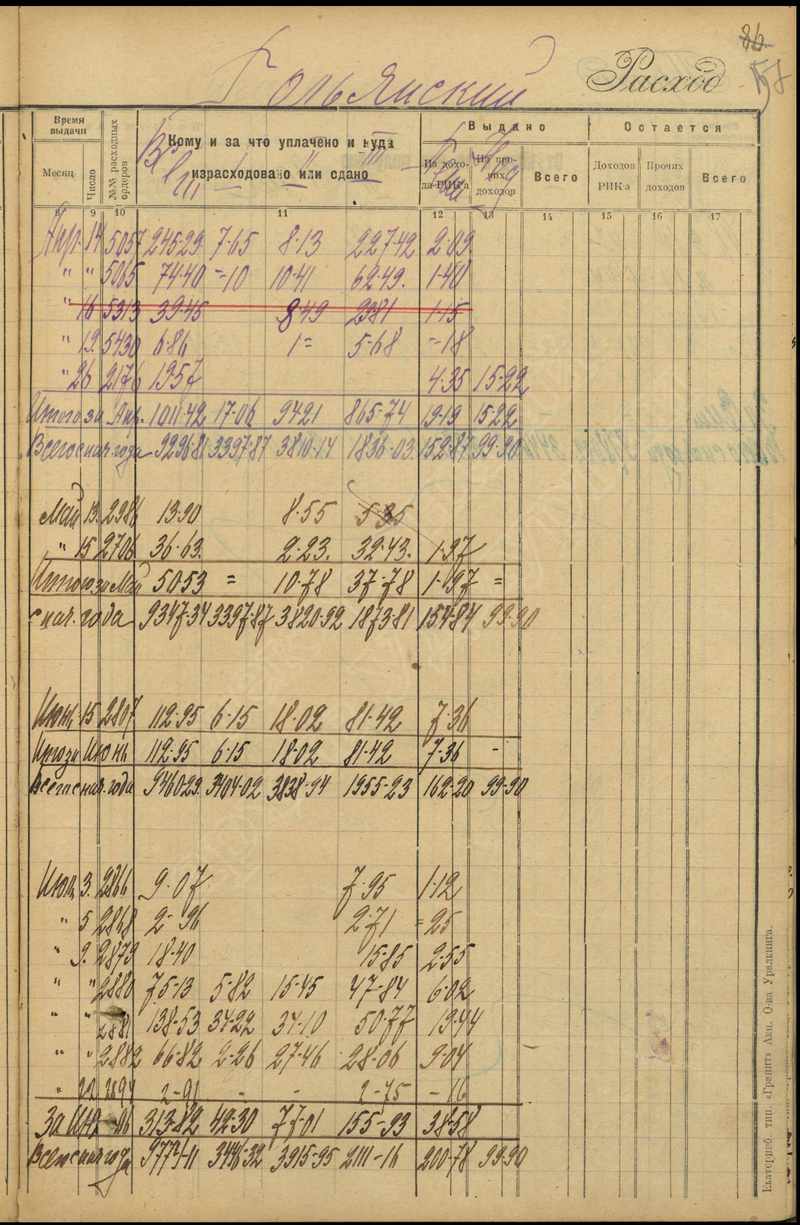 86
Гольянский
Расход
Время выдачи
№№ расходных ордеров
Кому и за что уплачено и куда израсходовано или сдано
Выдано
Остается
Месяц
Число
Из дохода РИК'а
Из проч. доходов
Всего
Доходов РИК'а
Прочих доходов
Всего
9 10 11 12 13 14 15 16 17
Апр. 14 5057 245-29 7-65 8-13 227-42 2-09
" " 5065 74-40 =10 10-41 62-49 1-40
" 16 5313 39-45 8-49 29-81 1-15
" 19 5430 6-86 1= 5-68 -18
" 26 2176 19-57 4-35 15-22
Итого за Апр. 1011-42 17-06 94-21 865-74 19-19 15-22
Всего с нач. года 9296-81 3397-87 3810-14 1836-03 152-87 99-90
Май 13 2986 13-90 8-55 5-35
" 15 2706 36-63 2-23 32-43 1-97
Итого за Май 50-53 = 10-78 37-78 1-97 =
с нач. года 9347-34 3397-87 3820-92 1873-81 154-84 99-90
Июнь 15 2807 112-95 6-15 18-02 81-42 7-36
Итого за Июнь 112-95 6-15 18-02 81-42 7-36 -
Всего с нач. года 9460-29 3404-02 3838-94 1955-23 162-20 99-90
Июль 3 2866 9-07 7-95 1-12
" 5 2868 2-96 2-71 =25
" 9 2879 18-40 15-85 2-55
" " 2880 75-13 5-82 15-45 47-84 6-02
" " 2881 138-53 34-22 34-10 50-77 19-44
" " 2882 66-82 2-26 27-46 28-06 9-04
" 22 2894 2-91 - - 2-75 -16
За 313-82 42-30 77-01 155-93 38-58
Всего с нач. года 9774-11 3446-32 3915-95 2111-16 200-78 99-90
Екатеринб. тип. «Гранит» Акц. О-ва Уралкнига.